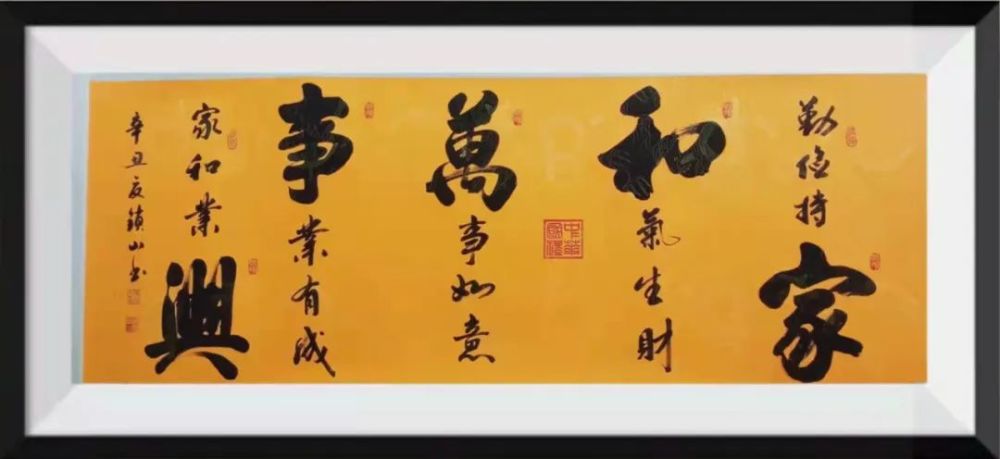 勤儉持家
和氣生財
萬事如意
事業有成
家和業興
辛丑夏鎮山书